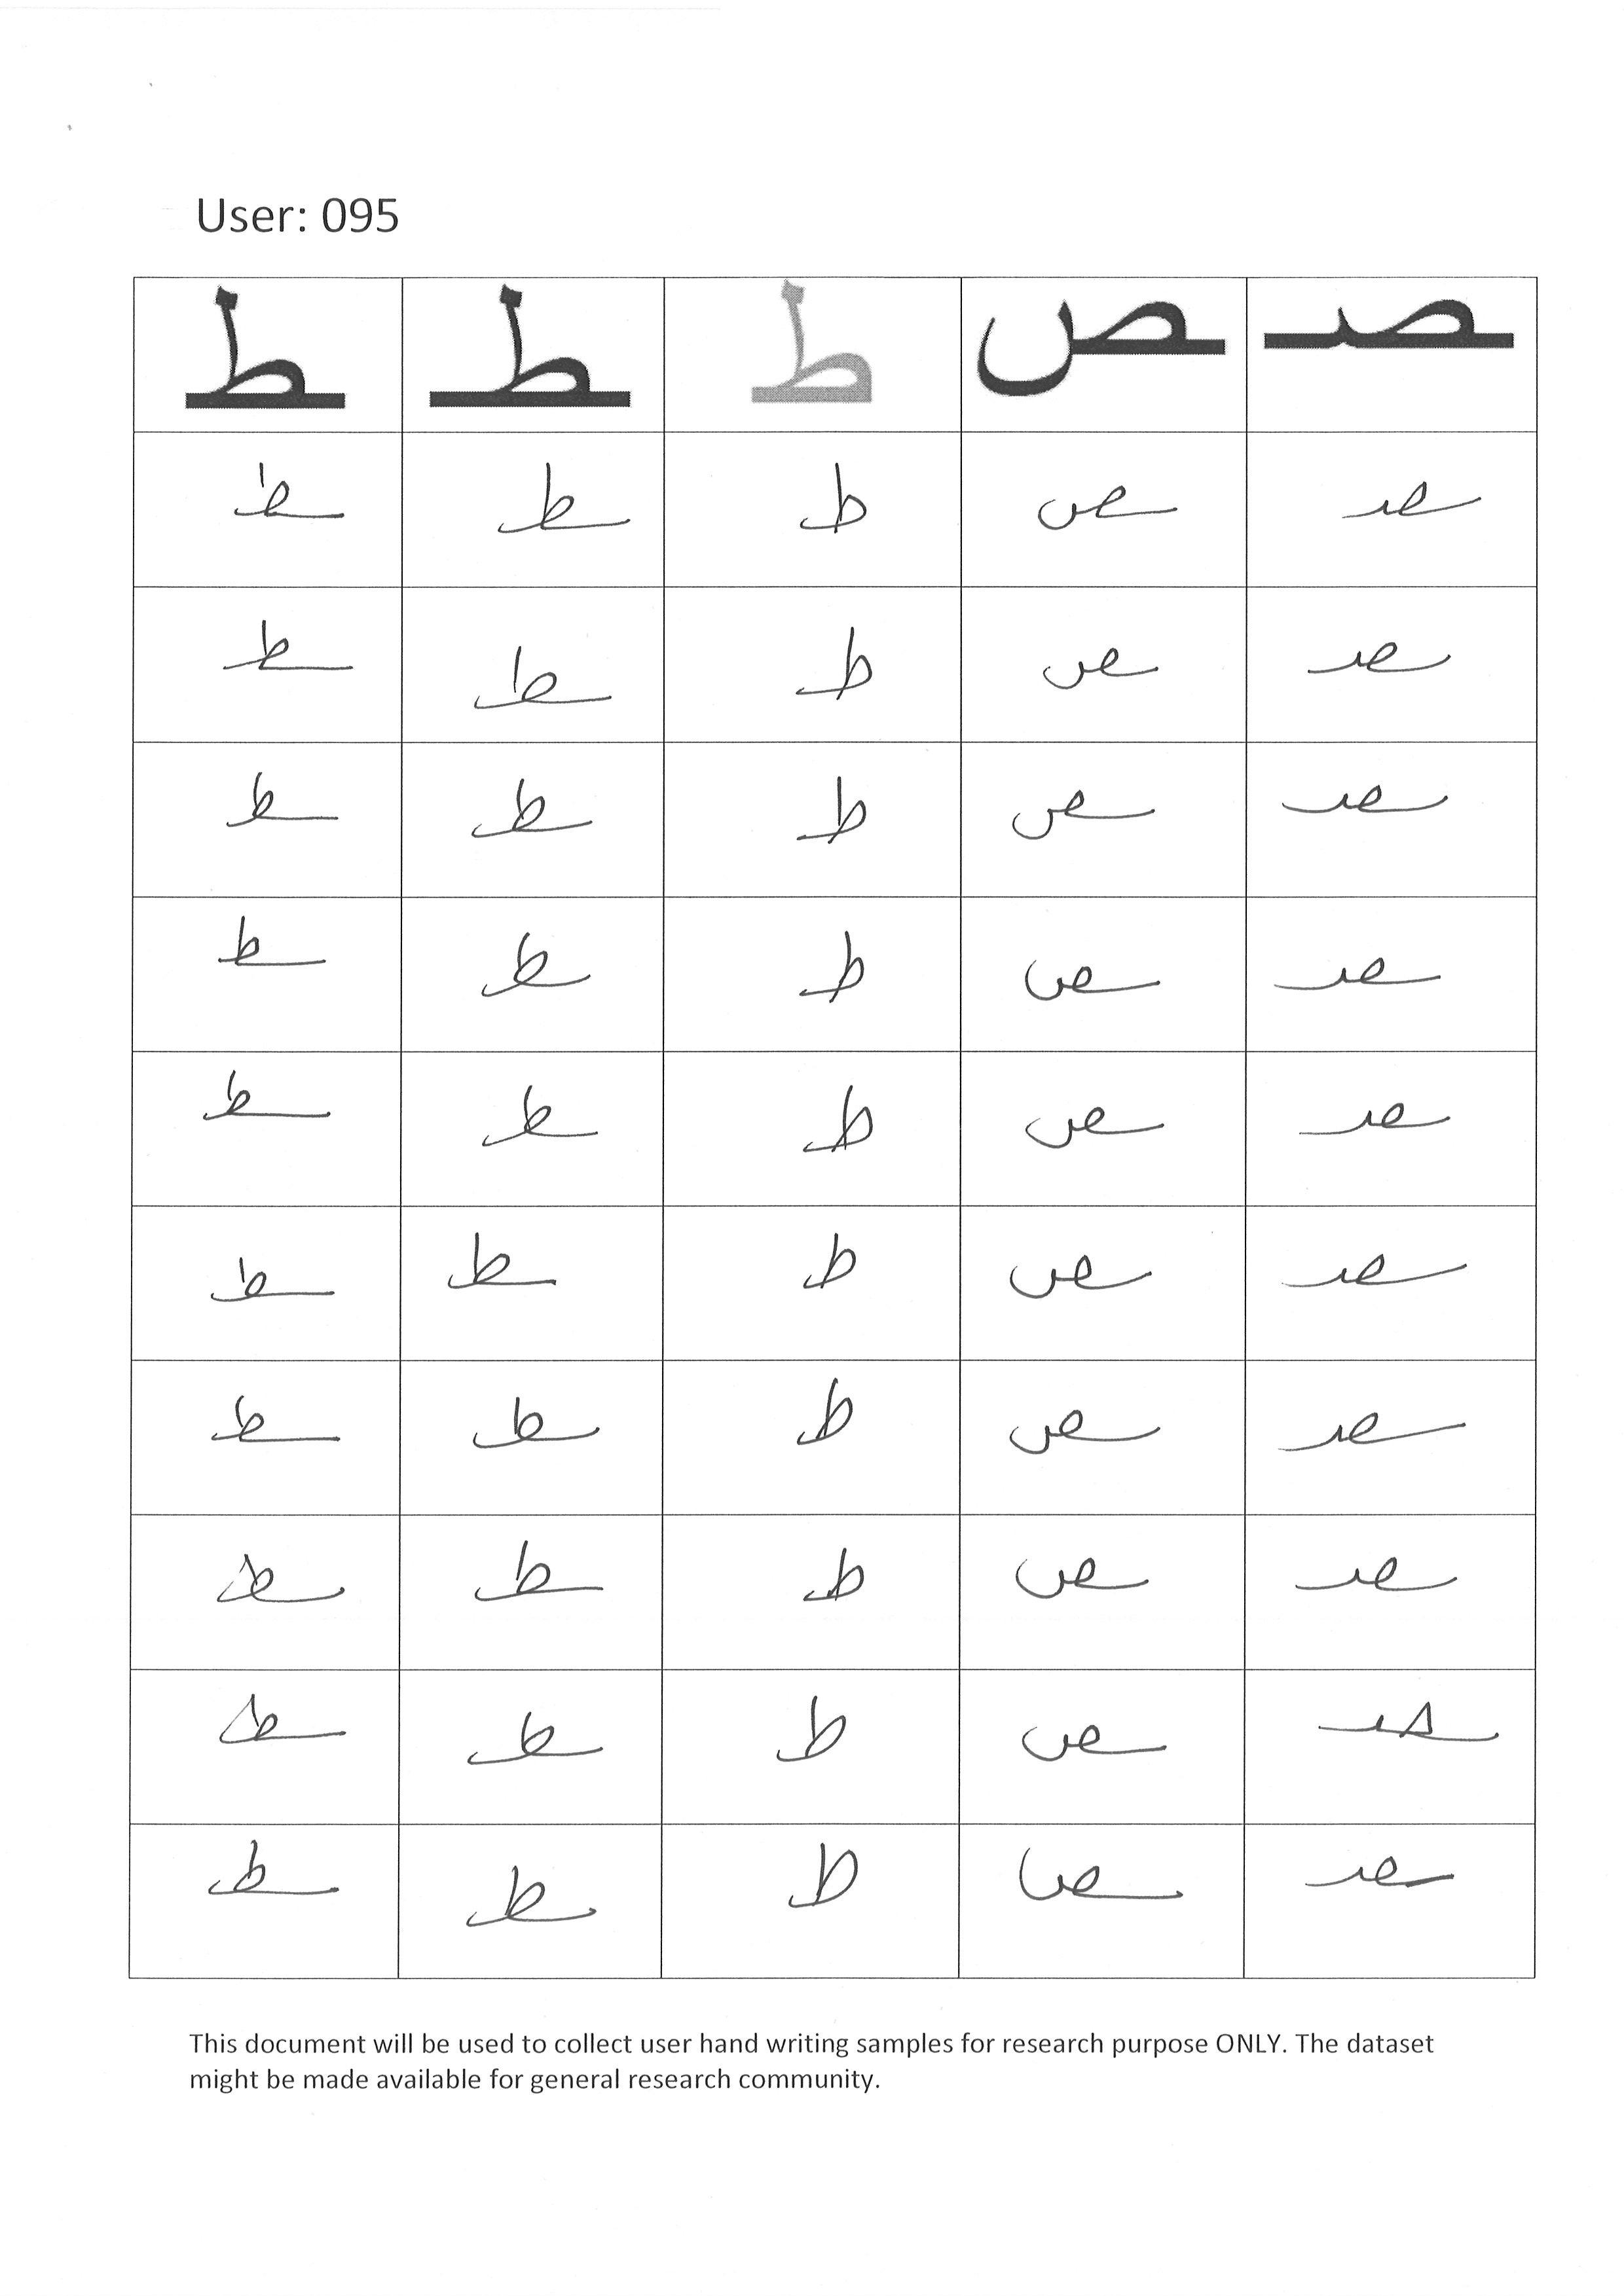 User: 095
ـط ـطـ ط ـص ـصـ
ـط ـطـ ط ـص ـصـ
ـط ـطـ ط ـص ـصـ
ـط ـطـ ط ـص ـصـ
ـط ـطـ ط ـص ـصـ
ـط ـطـ ط ـص ـصـ
ـط ـطـ ط ـص ـصـ
ـط ـطـ ط ـص ـصـ
ـط ـطـ ط ـص ـصـ
ـط ـطـ ط ـص ـصـ
ـط ـطـ ط ـص ـصـ
This document will be used to collect user hand writing samples for research purpose ONLY. The dataset
might be made available for general research community.